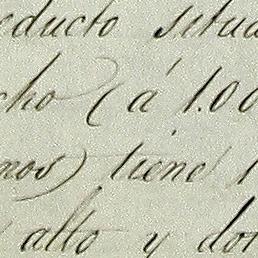 educto situa
cho (á 1.00
nos) tiene 1
alto y do